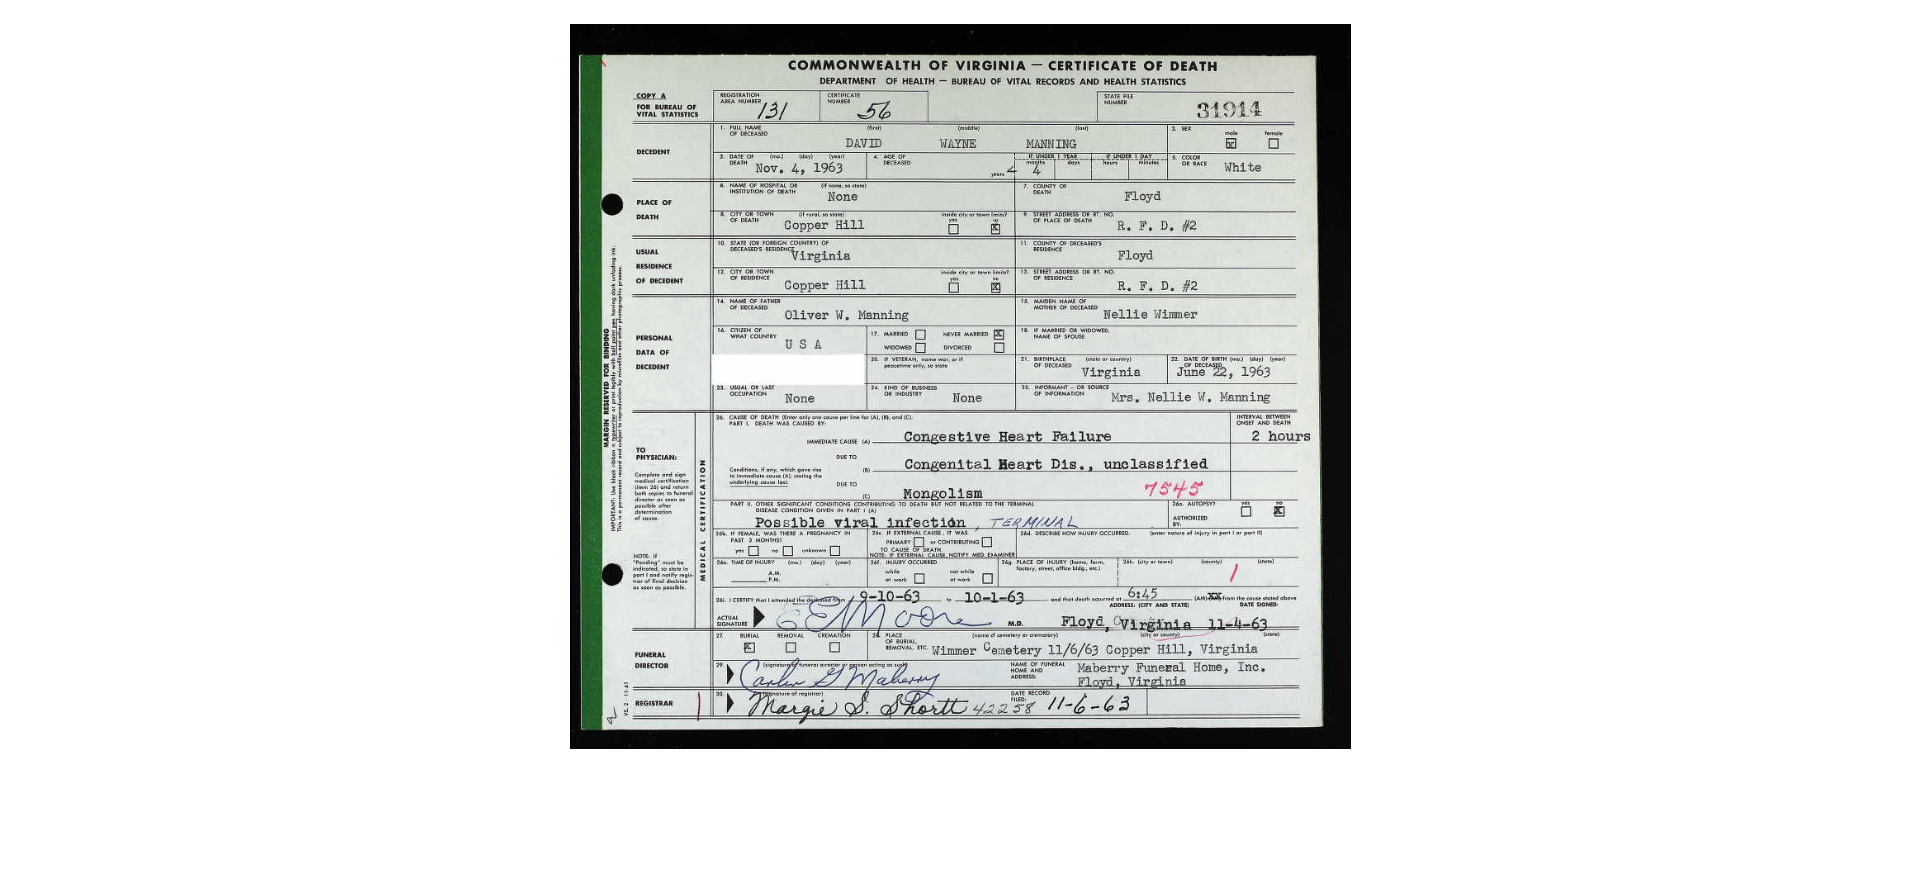 COMMONWEALTH OF VIRGINIA — CERTIFICATE OF DEATH
DEPARTMENT OF HEALTH — BUREAU OF VITAL RECORDS AND HEALTH STATISTICS
COPY A
FOR BUREAU OF VITAL STATISTICS
REGISTRATION AREA NUMBER 131
CERTIFICATE NUMBER 56
STATE FILE NUMBER 31914
DECEDENT
1. FULL NAME OF DECEASED (first) (middle) (last)
DAVID WAYNE MANNING
2. SEX male ☒ female ☐
3. DATE OF DEATH (mo.) (day) (year)
Nov. 4, 1963
4. AGE OF DECEASED years
IF UNDER 1 YEAR months days 4
IF UNDER 1 DAY hours minutes
5. COLOR OR RACE White
PLACE OF DEATH
6. NAME OF HOSPITAL OR INSTITUTION OF DEATH (if none, so state)
None
7. COUNTY OF DEATH
Floyd
8. CITY OR TOWN OF DEATH (if rural, so state)
Copper Hill
inside city or town limits? yes ☐ no ☒
9. STREET ADDRESS OR RT. NO. OF PLACE OF DEATH
R. F. D. #2
USUAL RESIDENCE OF DECEDENT
10. STATE (OR FOREIGN COUNTRY) OF DECEASED'S RESIDENCE
Virginia
11. COUNTY OF DECEASED'S RESIDENCE
Floyd
12. CITY OR TOWN OF RESIDENCE
Copper Hill
inside city or town limits? yes ☐ no ☒
13. STREET ADDRESS OR RT. NO. OF RESIDENCE
R. F. D. #2
PERSONAL DATA OF DECEDENT
14. NAME OF FATHER OF DECEASED
Oliver W. Manning
15. MAIDEN NAME OF MOTHER OF DECEASED
Nellie Wimmer
16. CITIZEN OF WHAT COUNTRY
U S A
17. MARRIED ☐ NEVER MARRIED ☒
WIDOWED ☐ DIVORCED ☐
18. IF MARRIED OR WIDOWED, NAME OF SPOUSE
20. IF VETERAN, name war, or if peacetime only, so state
21. BIRTHPLACE OF DECEASED (state or country)
Virginia
22. DATE OF BIRTH OF DECEASED (mo.) (day) (year)
June 22, 1963
23. USUAL OR LAST OCCUPATION
None
24. KIND OF BUSINESS OR INDUSTRY
None
25. INFORMANT — OR SOURCE OF INFORMATION
Mrs. Nellie W. Manning
MARGIN RESERVED FOR BINDING
TO PHYSICIAN:
Complete and sign medical certification (item 26) and return both copies to funeral director as soon as possible after determination of cause.
NOTE: IF "Pending" must be indicated, so state in part I and notify registrar of final decision as soon as possible.
MEDICAL CERTIFICATION
26. CAUSE OF DEATH (Enter only one cause per line for (A), (B), and (C).
PART I. DEATH WAS CAUSED BY:
INTERVAL BETWEEN ONSET AND DEATH
IMMEDIATE CAUSE (A) Congestive Heart Failure 2 hours
DUE TO
(B) Congenital Heart Dis., unclassified
Conditions, if any, which gave rise to immediate cause (A), stating the underlying cause last.
DUE TO
(C) Mongolism 7545
PART II. OTHER SIGNIFICANT CONDITIONS CONTRIBUTING TO DEATH BUT NOT RELATED TO THE TERMINAL DISEASE CONDITION GIVEN IN PART I (A)
Possible viral infection, TERMINAL
26a. AUTOPSY? yes ☐ no ☒
AUTHORIZED BY:
26b. IF FEMALE, WAS THERE A PREGNANCY IN PAST 3 MONTHS?
yes ☐ no ☐ unknown ☐
26c. IF EXTERNAL CAUSE, IT WAS
PRIMARY ☐ or CONTRIBUTING ☐
TO CAUSE OF DEATH
NOTE: IF EXTERNAL CAUSE, NOTIFY MED. EXAMINER
26d. DESCRIBE HOW INJURY OCCURRED. (enter nature of injury in part I or part II)
26e. TIME OF INJURY (mo.) (day) (year)
A.M.
P.M.
26f. INJURY OCCURRED
while at work ☐ not while at work ☐
26g. PLACE OF INJURY (home, farm, factory, street, office bldg., etc.)
26h. (city or town) (county) (state)
26i. I CERTIFY that I attended the deceased from 9-10-63 to 10-1-63 and that death occurred at 6:45 (AM) from the cause stated above
ADDRESS: (CITY AND STATE) DATE SIGNED:
ACTUAL SIGNATURE E E Moore M.D. Floyd, Virginia 11-4-63
FUNERAL DIRECTOR
27. BURIAL ☒ REMOVAL ☐ CREMATION ☐
28. PLACE OF BURIAL, REMOVAL, ETC. (name of cemetery or crematory) (city or county) (state)
Wimmer Cemetery 11/6/63 Copper Hill, Virginia
29. (signature of funeral director or person acting as such)
Carlin G Maberry
NAME OF FUNERAL HOME AND ADDRESS:
Maberry Funeral Home, Inc.
Floyd, Virginia
REGISTRAR
30. (signature of registrar)
Margie S. Shortt 42258
DATE RECORD FILED: 11-6-63